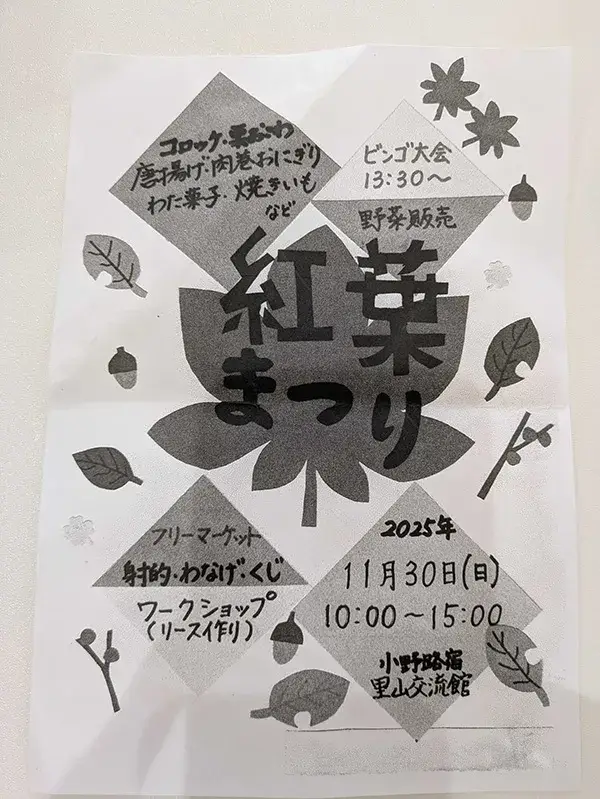 コロッケ・栗おこわ
唐揚げ・肉巻おにぎり
わた菓子・焼きいも
など
ビンゴ大会
13:30～
野菜販売
紅葉
まつり
フリーマーケット
射的・わなげ・くじ
ワークショップ
(リース作り)
2025年
11月30日(日)
10:00～15:00
小野路宿
里山交流館